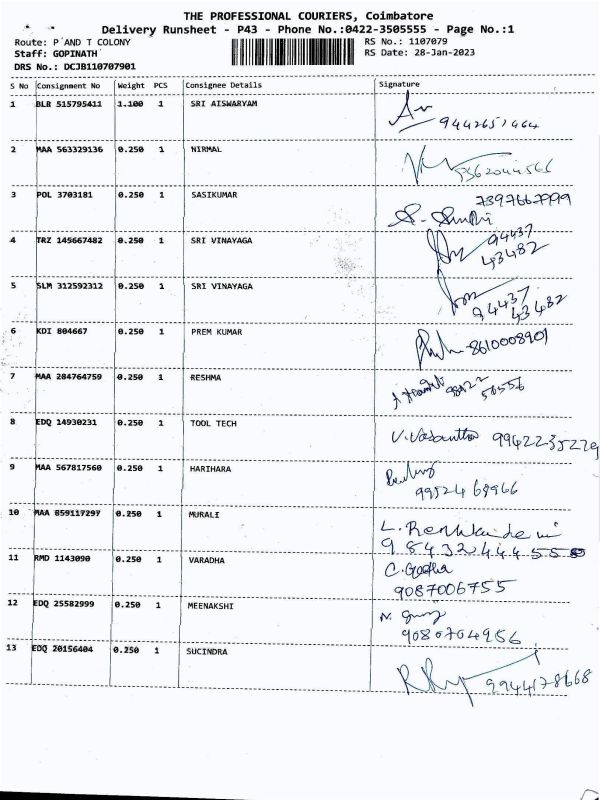 THE PROFESSIONAL COURIERS, Coimbatore
Delivery Runsheet - P43 - Phone No.:0422-3505555 - Page No.:1
Route: P AND T COLONY
RS No.: 1107079
Staff: GOPINATH
RS Date: 28-Jan-2023
DRS No.: DCJB110707901
S No Consignment No Weight PCS Consignee Details Signature
1 BLR 515795411 1.100 1 SRI AISWARYAM
2 MAA 563329136 0.250 1 NIRMAL
3 POL 3703181 0.250 1 SASIKUMAR 7397667999
4 TRZ 145667482 0.250 1 SRI VINAYAGA 94437
43482
5 SLM 312592312 0.250 1 SRI VINAYAGA 94437
43482
6 KDI 804667 0.250 1 PREM KUMAR 8610008901
7 MAA 284764759 0.250 1 RESHMA
8 EDQ 14930231 0.250 1 TOOL TECH V. Vasantha 9942235229
9 MAA 567817560 0.250 1 HARIHARA
99524 68966
10 MAA 859117297 0.250 1 MURALI
L. Renukadevi
11 RMD 1143090 0.250 1 VARADHA C. Godha
9087006755
12 EDQ 25582999 0.250 1 MEENAKSHI
9080704956
13 EDQ 20156404 0.250 1 SUCINDRA
9944178668